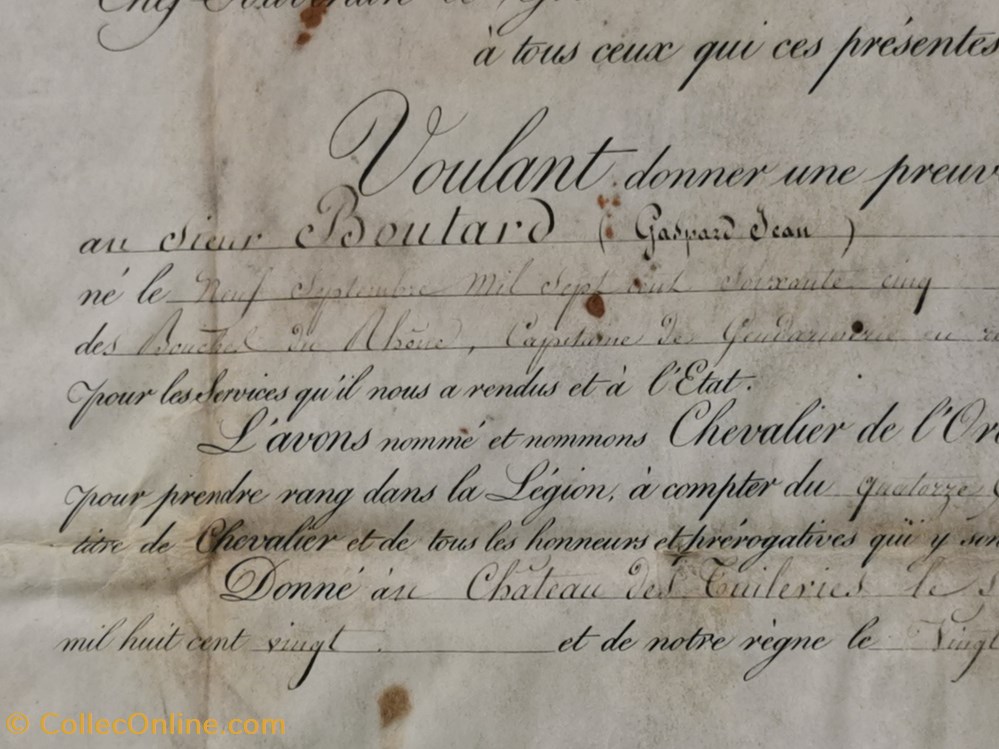 Chef Souverain et Gr
à tous ceux qui ces présentes
Voulant donner une preuv
au sieur Boutard ( Gaspard Jean )
né le Neuf Septembre Mil Sept cent soixante cinq
des Bouches du Rhône, Capitaine de Gendarmerie en
pour les Services qu'il nous a rendus et à l'Etat.
L'avons nommé et nommons Chevalier de l'Or
pour prendre rang dans la Légion, à compter du quatorze
titre de Chevalier et de tous les honneurs et prérogatives qui y son
Donné au Château des Tuileries le s
mil huit cent vingt et de notre règne le Vingt
© CollecOnline.com